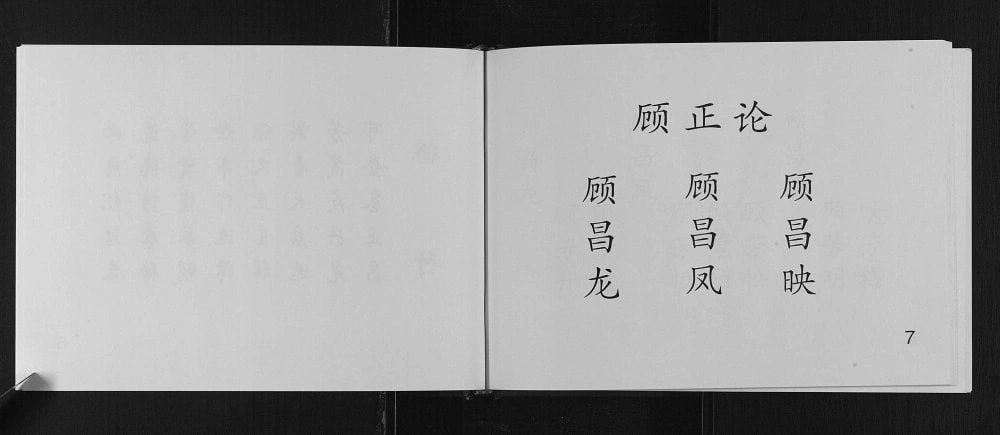 顾正论
顾昌映
顾昌凤
顾昌龙
7